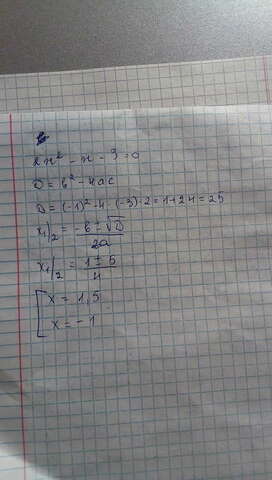 2x² - x - 3 = 0
D = b² - 4ac
D = (-1)² - 4 · (-3) · 2 = 1 + 24 = 25
x₁/₂ = (-b ± √D) / 2a
x₁/₂ = (1 ± 5) / 4
[ x = 1,5
x = -1